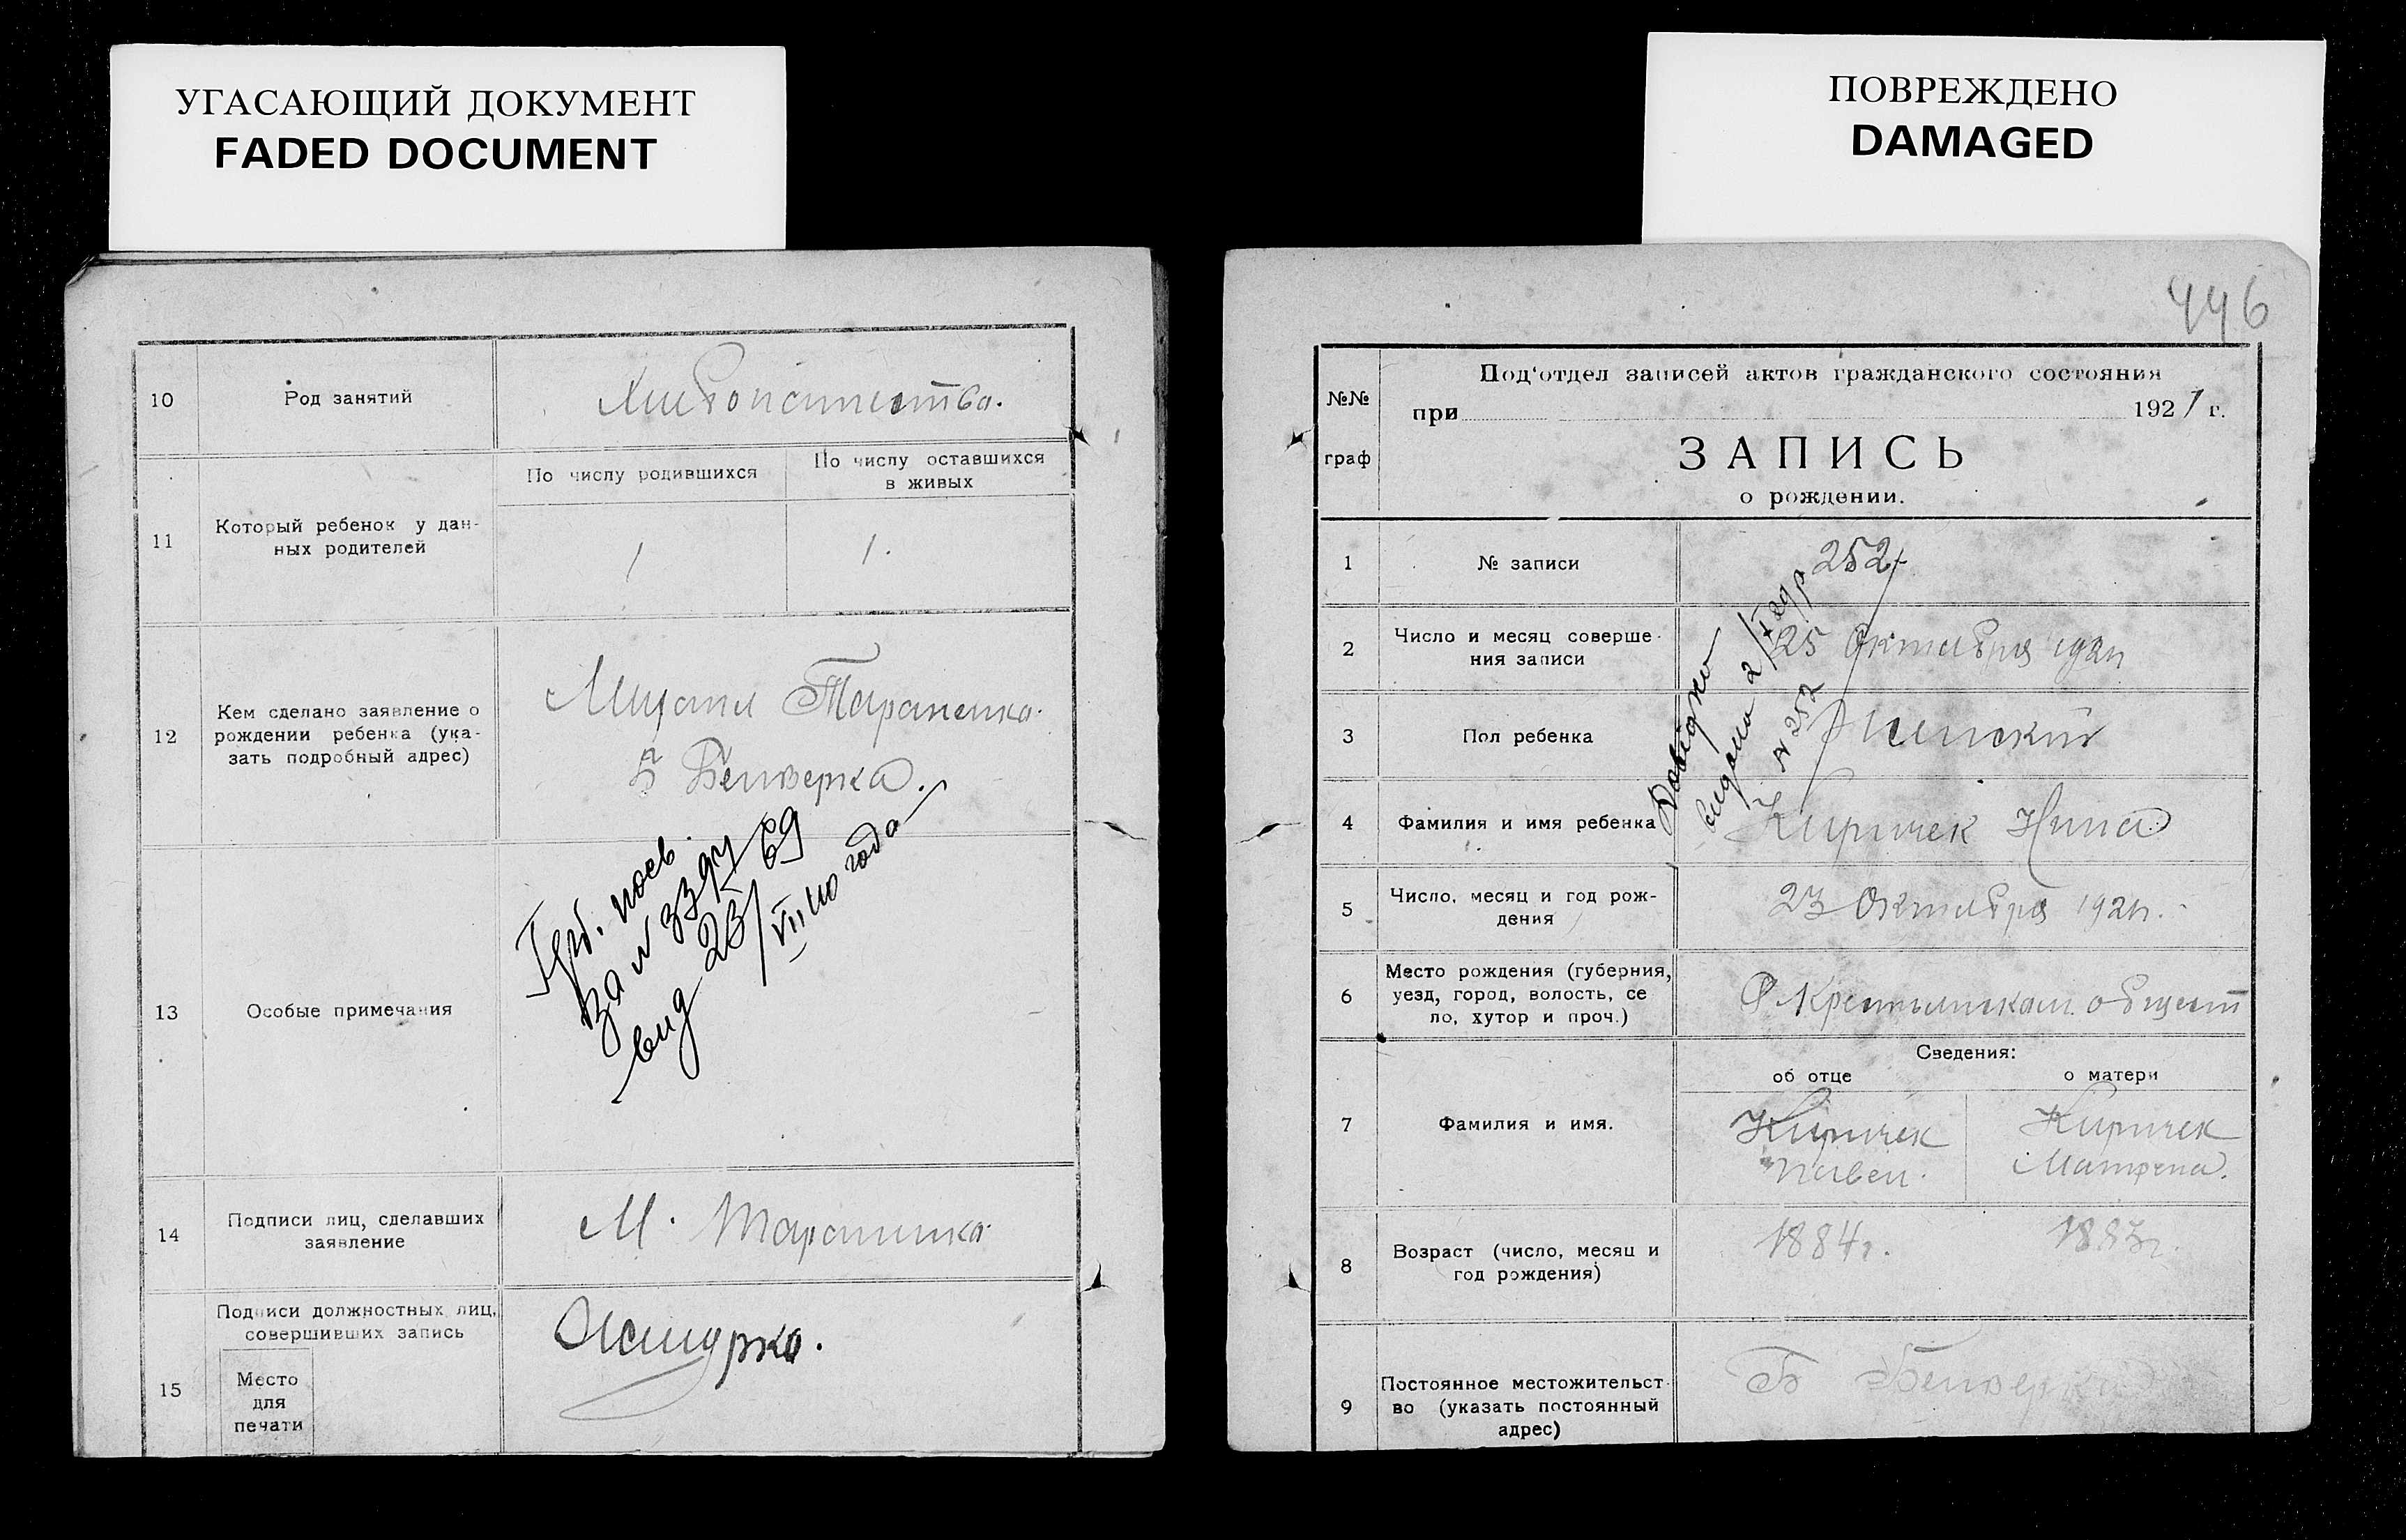 УГАСАЮЩИЙ ДОКУМЕНТ
FADED DOCUMENT
10
Род занятий
11
Который ребенок у дан-
ных родителей
По числу родившихся
По числу оставшихся
в живых
1
1.
12
Кем сделано заявление о
рождении ребенка (ука-
зать подробный адрес)
Михаил Тараненко.
Б
13
Особые примечания
Герб.
за №
вид 23/VII 69
го года
14
Подписи лиц, сделавших
заявление
М. Тараненко
15
Подписи должностных лиц,
совершивших запись
Место
для
печати
ПОВРЕЖДЕНО
DAMAGED
446
№№
граф
Под'отдел записей актов гражданского состояния
при 1921 г.
ЗАПИСЬ
о рождении.
1
№ записи
252
2
Число и месяц соверше-
ния записи
25 Октября 1921
3
Пол ребенка
Женский
4
Фамилия и имя ребенка
Киричек Нина
видана 2/I
№ 252
5
Число, месяц и год рож-
дения
23 Октября 1921.
6
Место рождения (губерния,
уезд, город, волость, се
ло, хутор и проч.)
7
Фамилия и имя.
Сведения:
об отце
о матери
Киричек
Павел.
Киричек
Матрена.
8
Возраст (число, месяц и
год рождения)
1884г.
1883г.
9
Постоянное местожительст-
во (указать постоянный
адрес)
Б